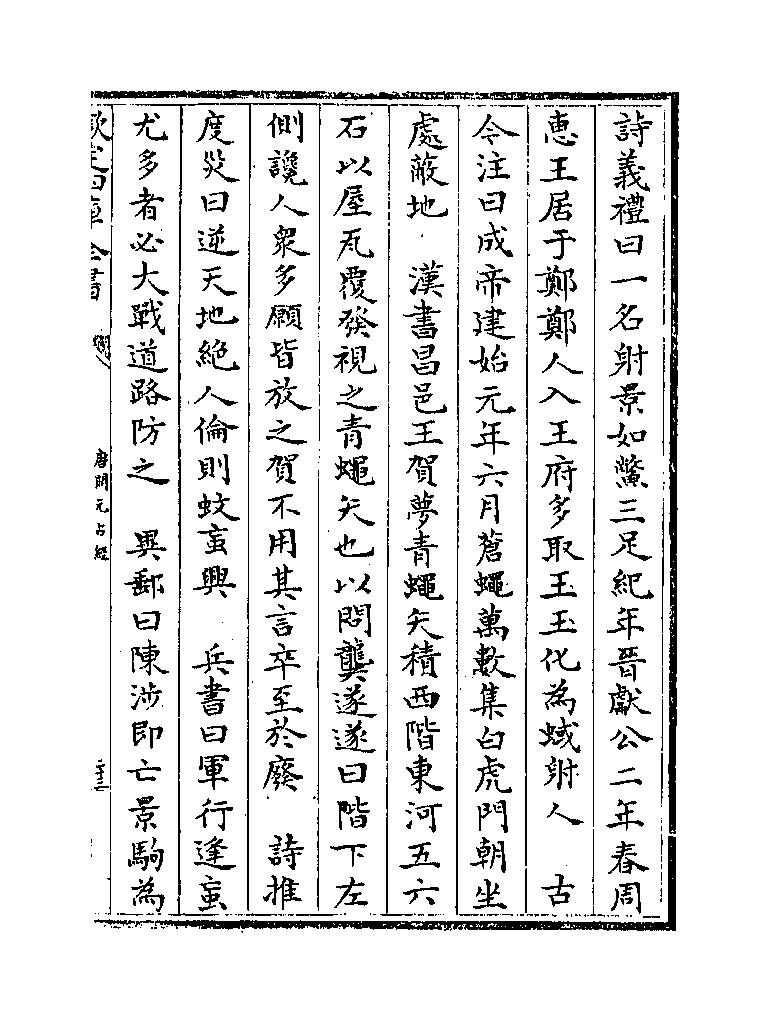 詩義禮曰一名射景如鱉三足紀年晉獻公二年春周
恵王居于鄭鄭人入王府多取玉玉化為蜮射人　古
今注曰成帝建始元年六月蒼蠅萬數集白虎門朝坐
處蔽地　漢書昌邑王賀夢青蠅矢積西階東河五六
石以屋瓦覆發視之青蠅矢也以問龔遂遂曰階下左
側讒人衆多願皆放之賀不用其言卒至於廢　詩推
度災曰逆天地絶人倫則蚊䖟興　兵書曰軍行逢䖟
尤多者必大戰道路防之　異郵曰陳涉即亡景駒為
欽定四庫全書
唐開元占經
二十三